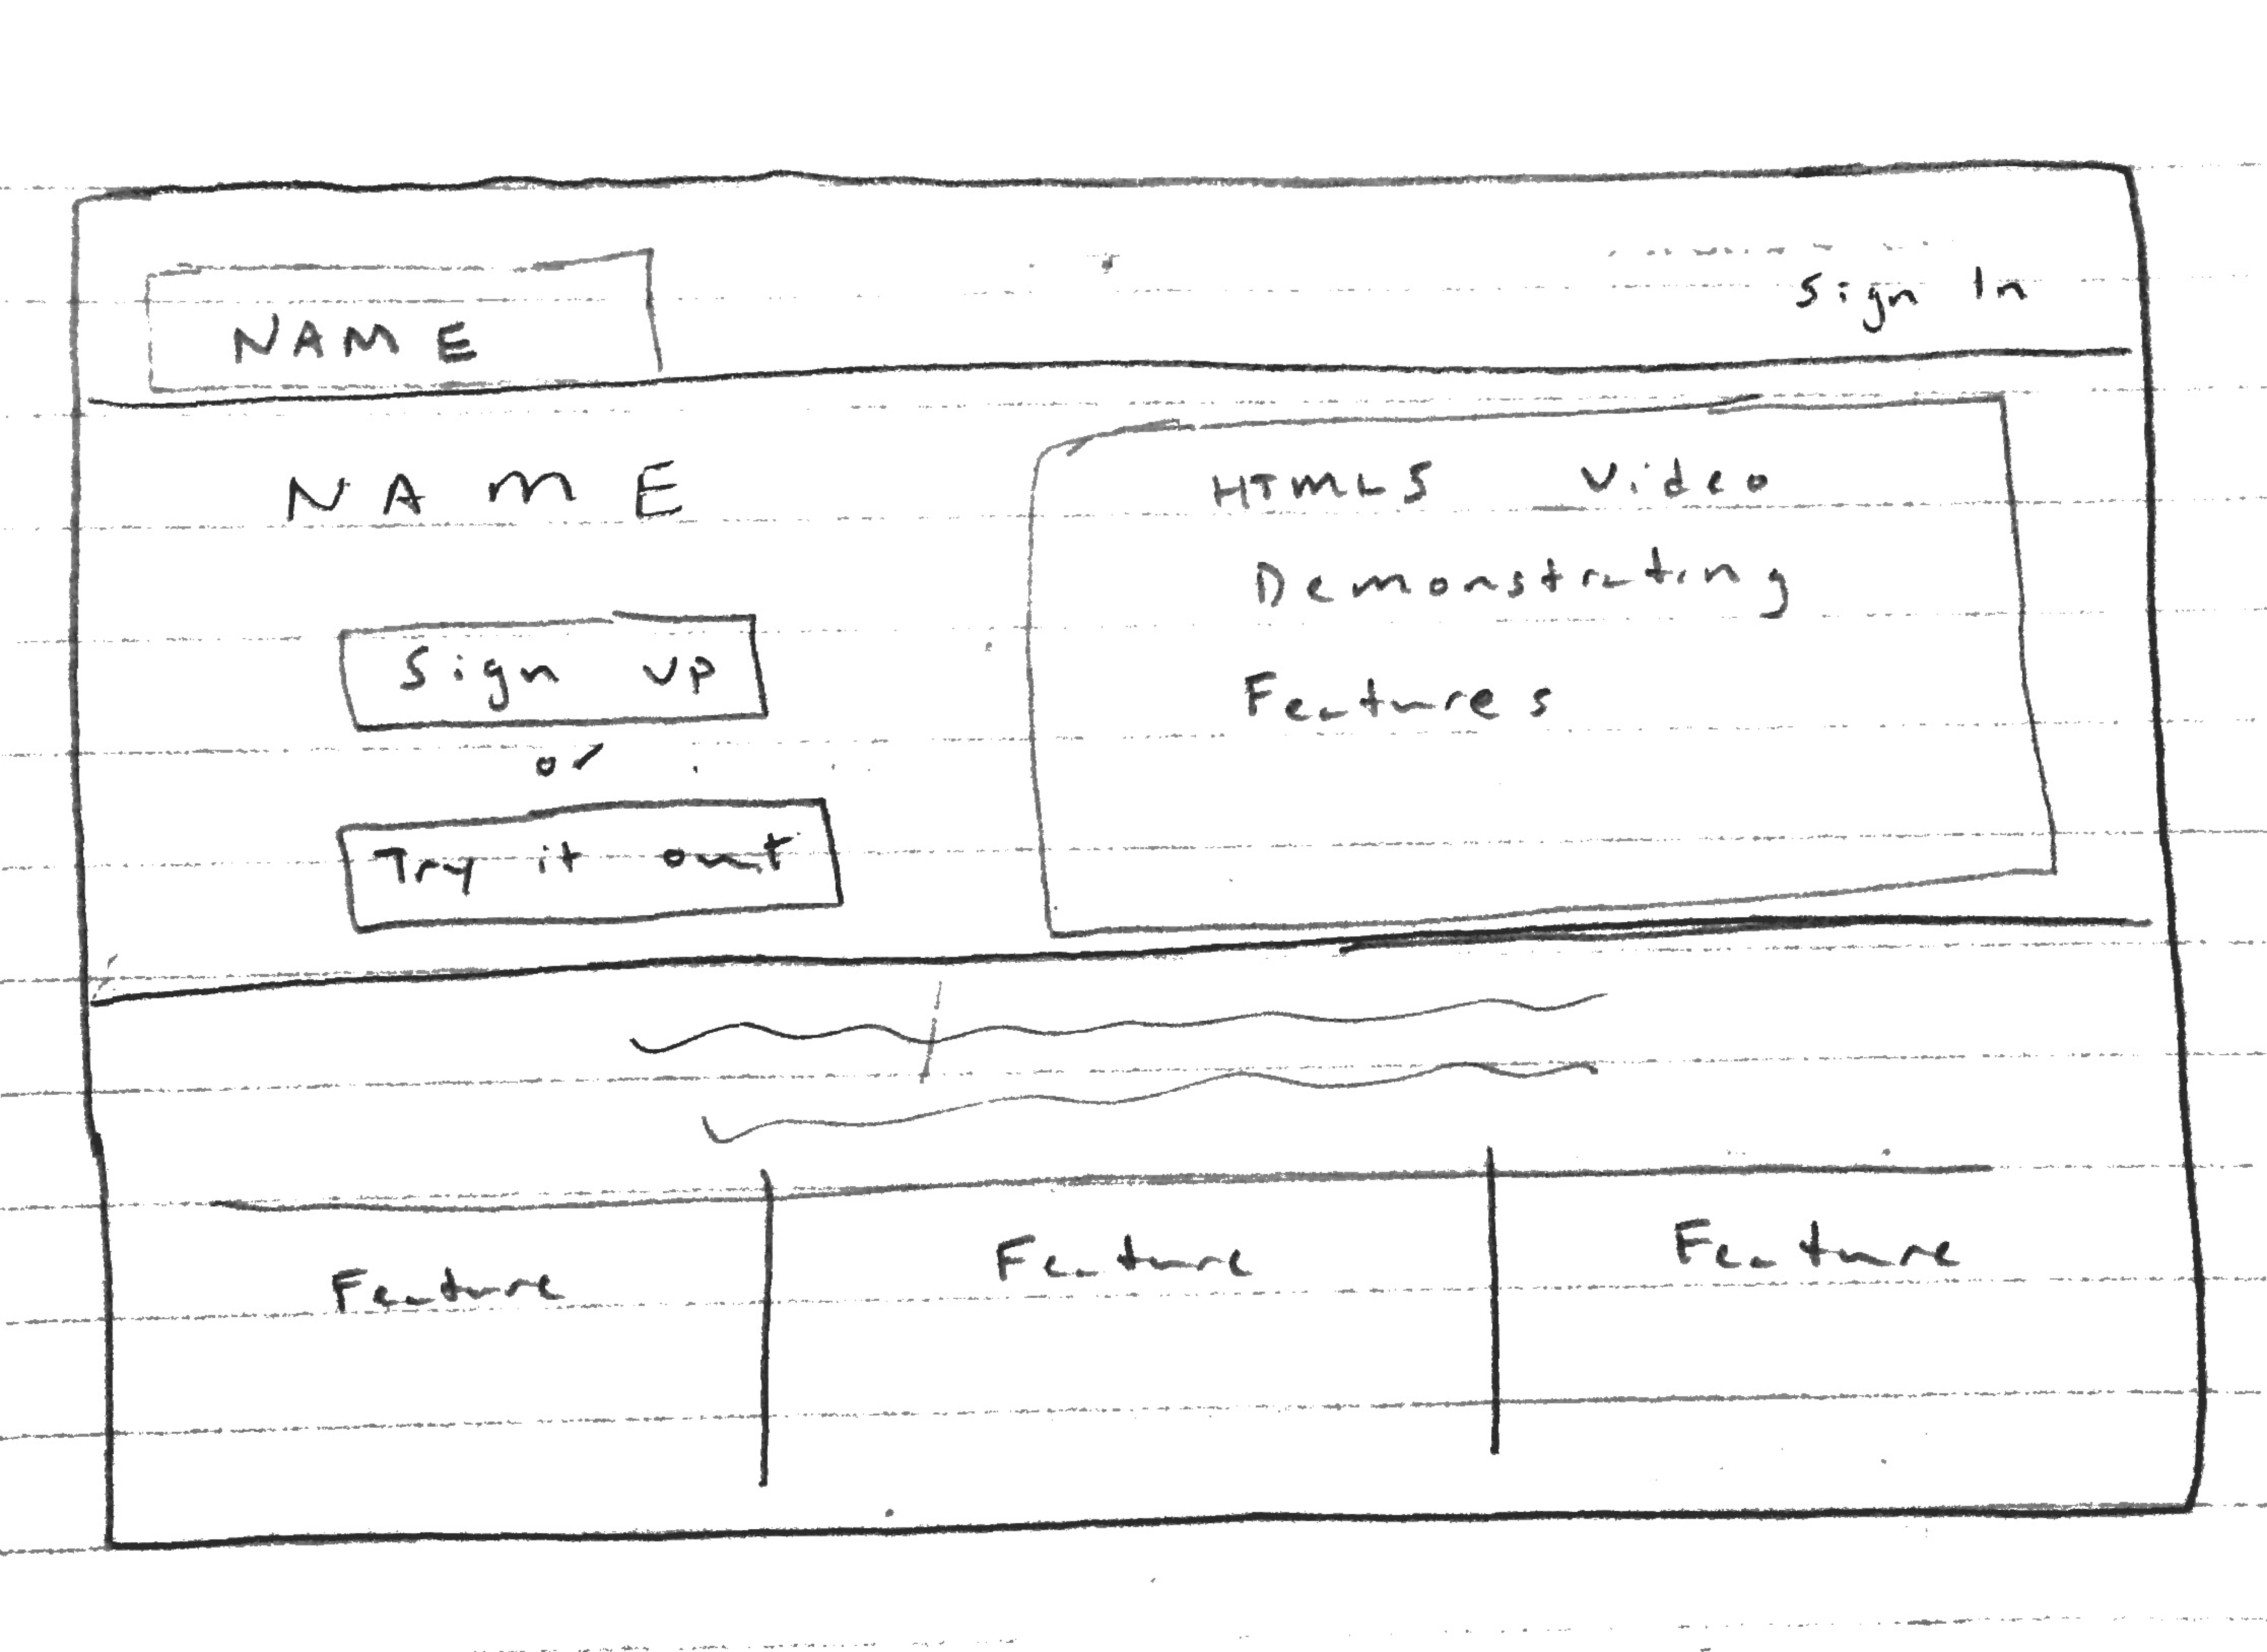 NAME
Sign In
NAME
Sign up
or
Try it out
HTML5 Video
Demonstrating
Features
Feature
Feature
Feature